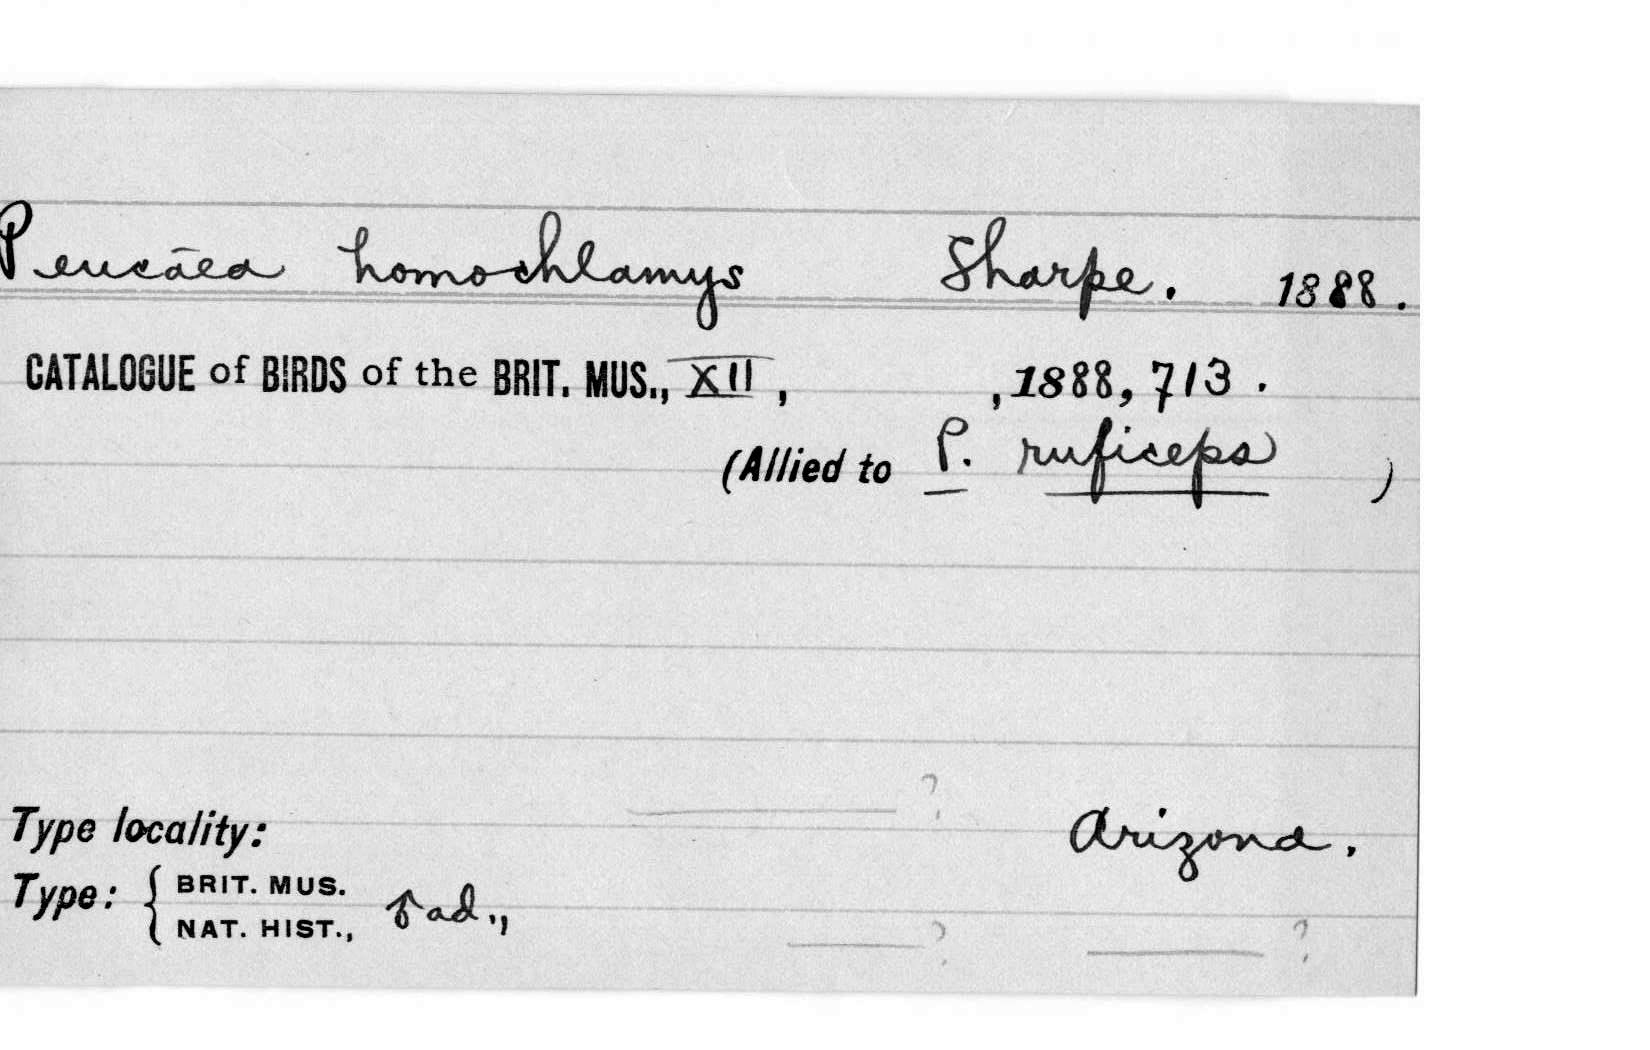 Peucāea homochlamys Sharpe. 1888.
CATALOGUE of BIRDS of the BRIT. MUS., XII, , 1888, 713.
(Allied to P. ruficeps )
? Arizona.
Type locality:
Type: { BRIT. MUS. NAT. HIST., ♂ ad., ? ?